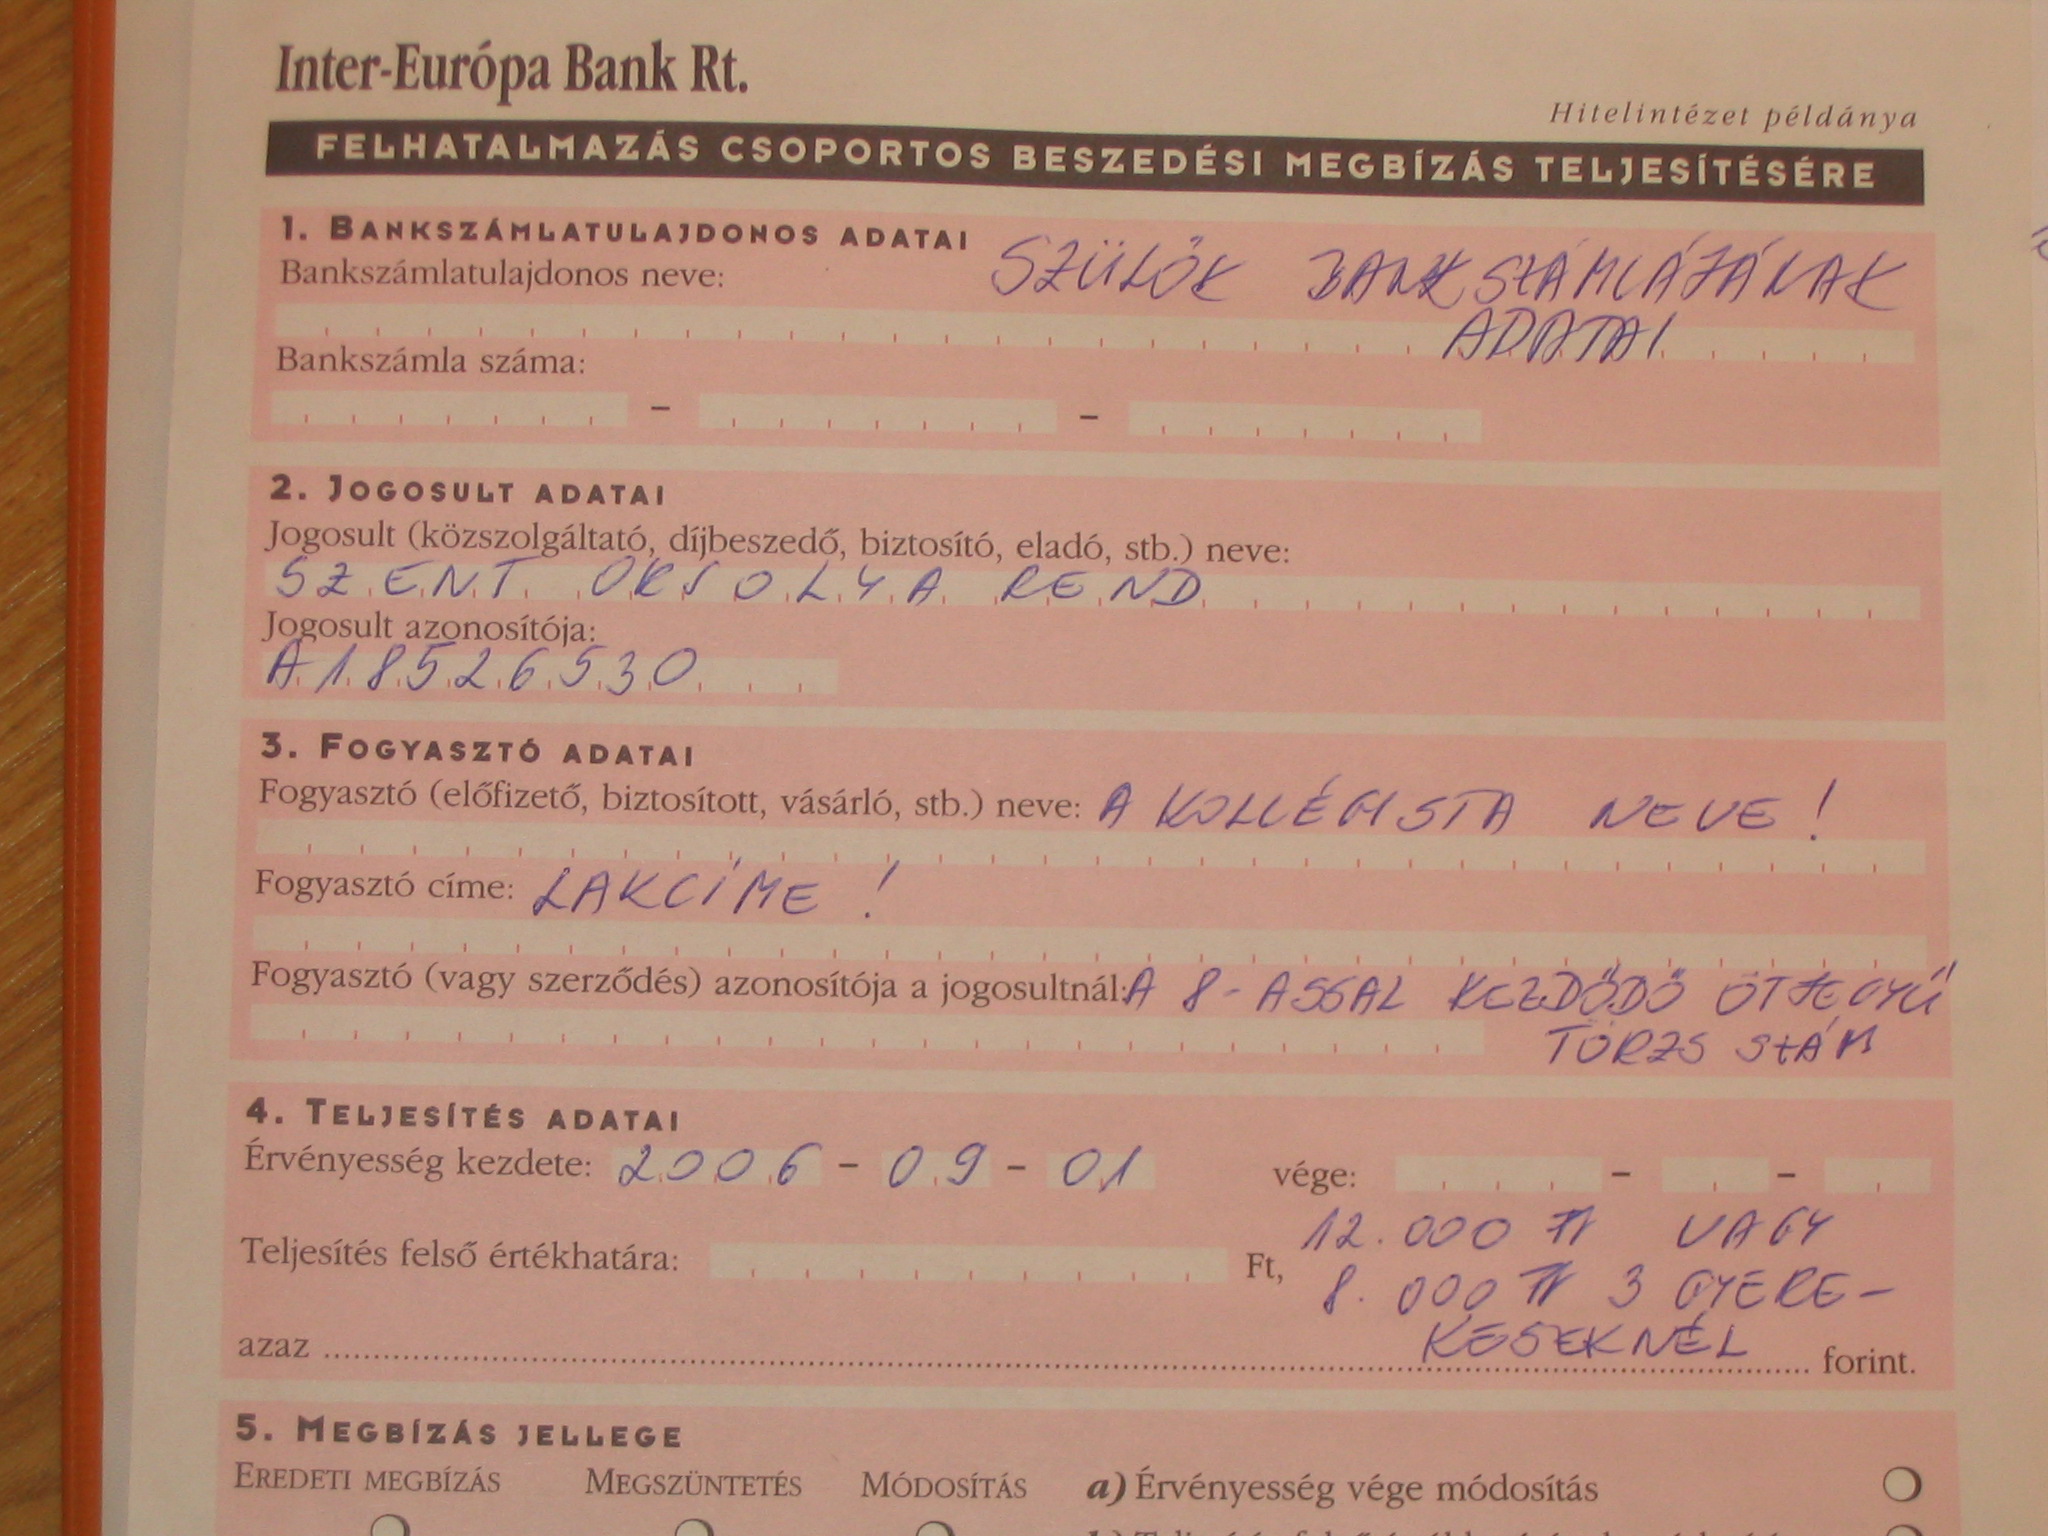 Inter-Európa Bank Rt.
Hitelintézet példánya
FELHATALMAZÁS CSOPORTOS BESZEDÉSI MEGBÍZÁS TELJESÍTÉSÉRE
1. BANKSZÁMLATULAJDONOS ADATAI
Bankszámlatulajdonos neve: SZÜLŐK BANKSZÁMLÁJÁNAK
ADATAI
Bankszámla száma:
– –
2. JOGOSULT ADATAI
Jogosult (közszolgáltató, díjbeszedő, biztosító, eladó, stb.) neve:
SZENT ORSOLYA REND
Jogosult azonosítója:
A18526530
3. FOGYASZTÓ ADATAI
Fogyasztó (előfizető, biztosított, vásárló, stb.) neve: A KOLLÉGISTA NEVE!
Fogyasztó címe: LAKCÍME!
Fogyasztó (vagy szerződés) azonosítója a jogosultnál: A 8-ASSAL KEZDŐDŐ ÖTJEGYŰ
TÖRZS SZÁM
4. TELJESÍTÉS ADATAI
Érvényesség kezdete: 2006 – 09 – 01 vége: – –
12.000 Ft VAGY
Teljesítés felső értékhatára: Ft, 8.000 Ft 3 GYERE-
KESEKNÉL
azaz .......... forint.
5. MEGBÍZÁS JELLEGE
EREDETI MEGBÍZÁS MEGSZÜNTETÉS MÓDOSÍTÁS a) Érvényesség vége módosítás